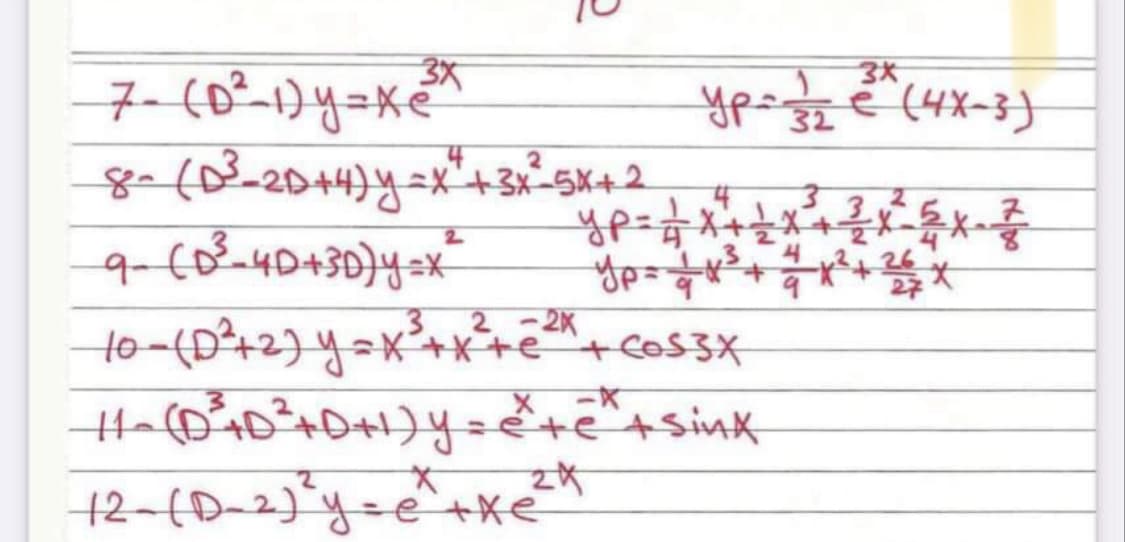 10
7- (D²-1) y = x e^{3x} yp = 1/32 e^{3x} (4x-3)
8- (D³-2D+4) y = x⁴+3x²-5x+2
yp = 1/4 x⁴ + 1/2 x³ + 3/2 x² - 5/4 x - 7/8
9- (D³-4D+3D) y = x² yp = 1/9 x³ + 4/9 x² + 26/27 x
10- (D²+2) y = x³+x²+e^{-2x} + cos3x
11- (D³+D²+D+1) y = e^x + e^{-x} + sinx
12- (D-2)² y = e^x + x e^{2x}